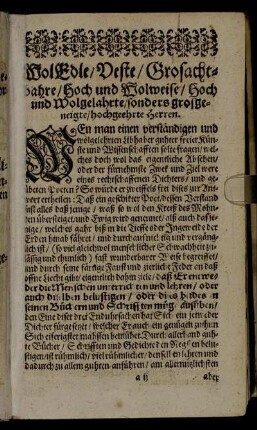 WolEdle/ Veste/ Grosacht-
bahre/ Hoch und Wolweise/ Hoch
und Wolgelahrte/ sonders großge-
neigte/ hochgeehrte Herren.
WEn man einen verständigen und
wolgelehrten Liebhaber guhter freier Kün-
ste und Wissenschafften solte fragen/ wel-
ches doch wol das eigentliche Absehen/
oder der fürnehmste Zwek und Ziel were
eines rechtschaffenen Dichters/ und ge-
übeten Poeten? So würde er zweifels frei dises zur Ant-
wert ertheilen: Daß ein geschikter Poet/ dessen Verstand
alles daß jenige/ was so viel den Kreiß des Mohn-
den übersteiget/ und Ewig wird genennet/ als auch dasse-
nige/ welches gahr biß in die Tieffe oder Ingeweide der
Erden hinab fähret/ und durchaus nichtig und vergäng-
lich ist/ (so viel gleichwol menschlicher Schwachheit zu-
lässig und thunlich) fast wunderbarer Weise begreiffet/
und durch seine fürtige Faust und zierliche Feder an daß
offne Liecht gibt/ eigentlich dahin ziele/ daß Er entwe-
der die Menschen unterrichten und lehren/ oder
auch dieselben belustigen/ oder dise beiden in
seinen Büchern und Schrifften müge ausüben/
den Eine diser drei Endursachen hat Sich ein jeweder
Dichter fürgesetzet/ welcher Er auch ein genügen zuthun
Sich eiferigster mahssen bemühet. Durch allerhand guh-
te Bücher/ Schrifften und Gedichte den Negsten belu-
stigen/ ist rühmlich/ viel rühmlicher/ denselben lehren und
dadurch zu allem guhten anführen/ am allernützlichsten
a ij aber